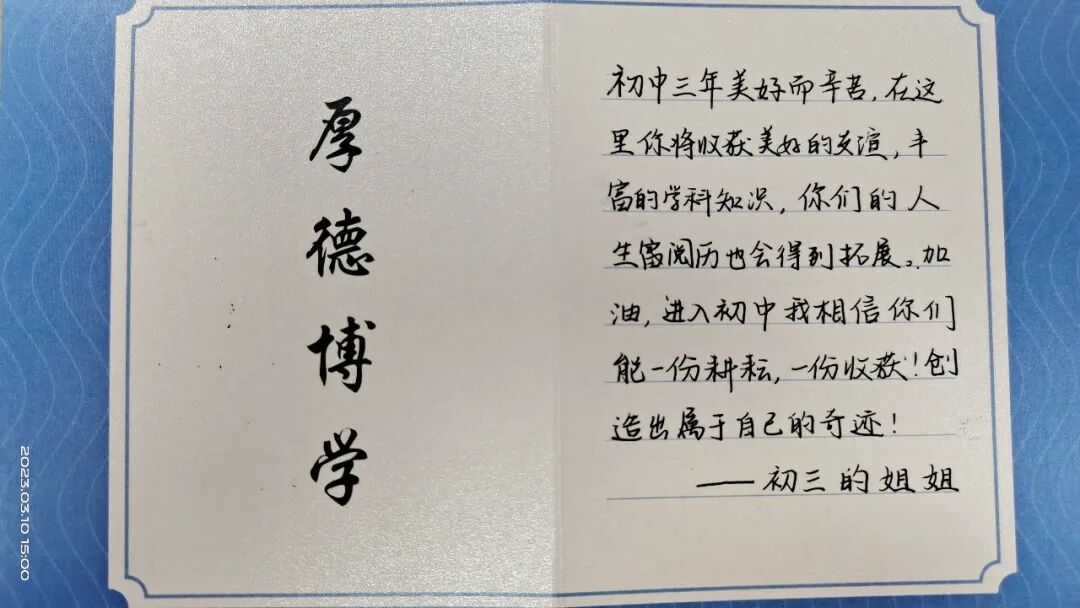 厚德博学
初中三年美好而辛苦，在这
里你将收获美好的友谊，丰
富的学科知识，你们的人
生富阅历也会得到拓展。加
油，进入初中我相信你们
能一份耕耘，一份收获！创
造出属于自己的奇迹！
——初三的姐姐
2023.03.10 15:00